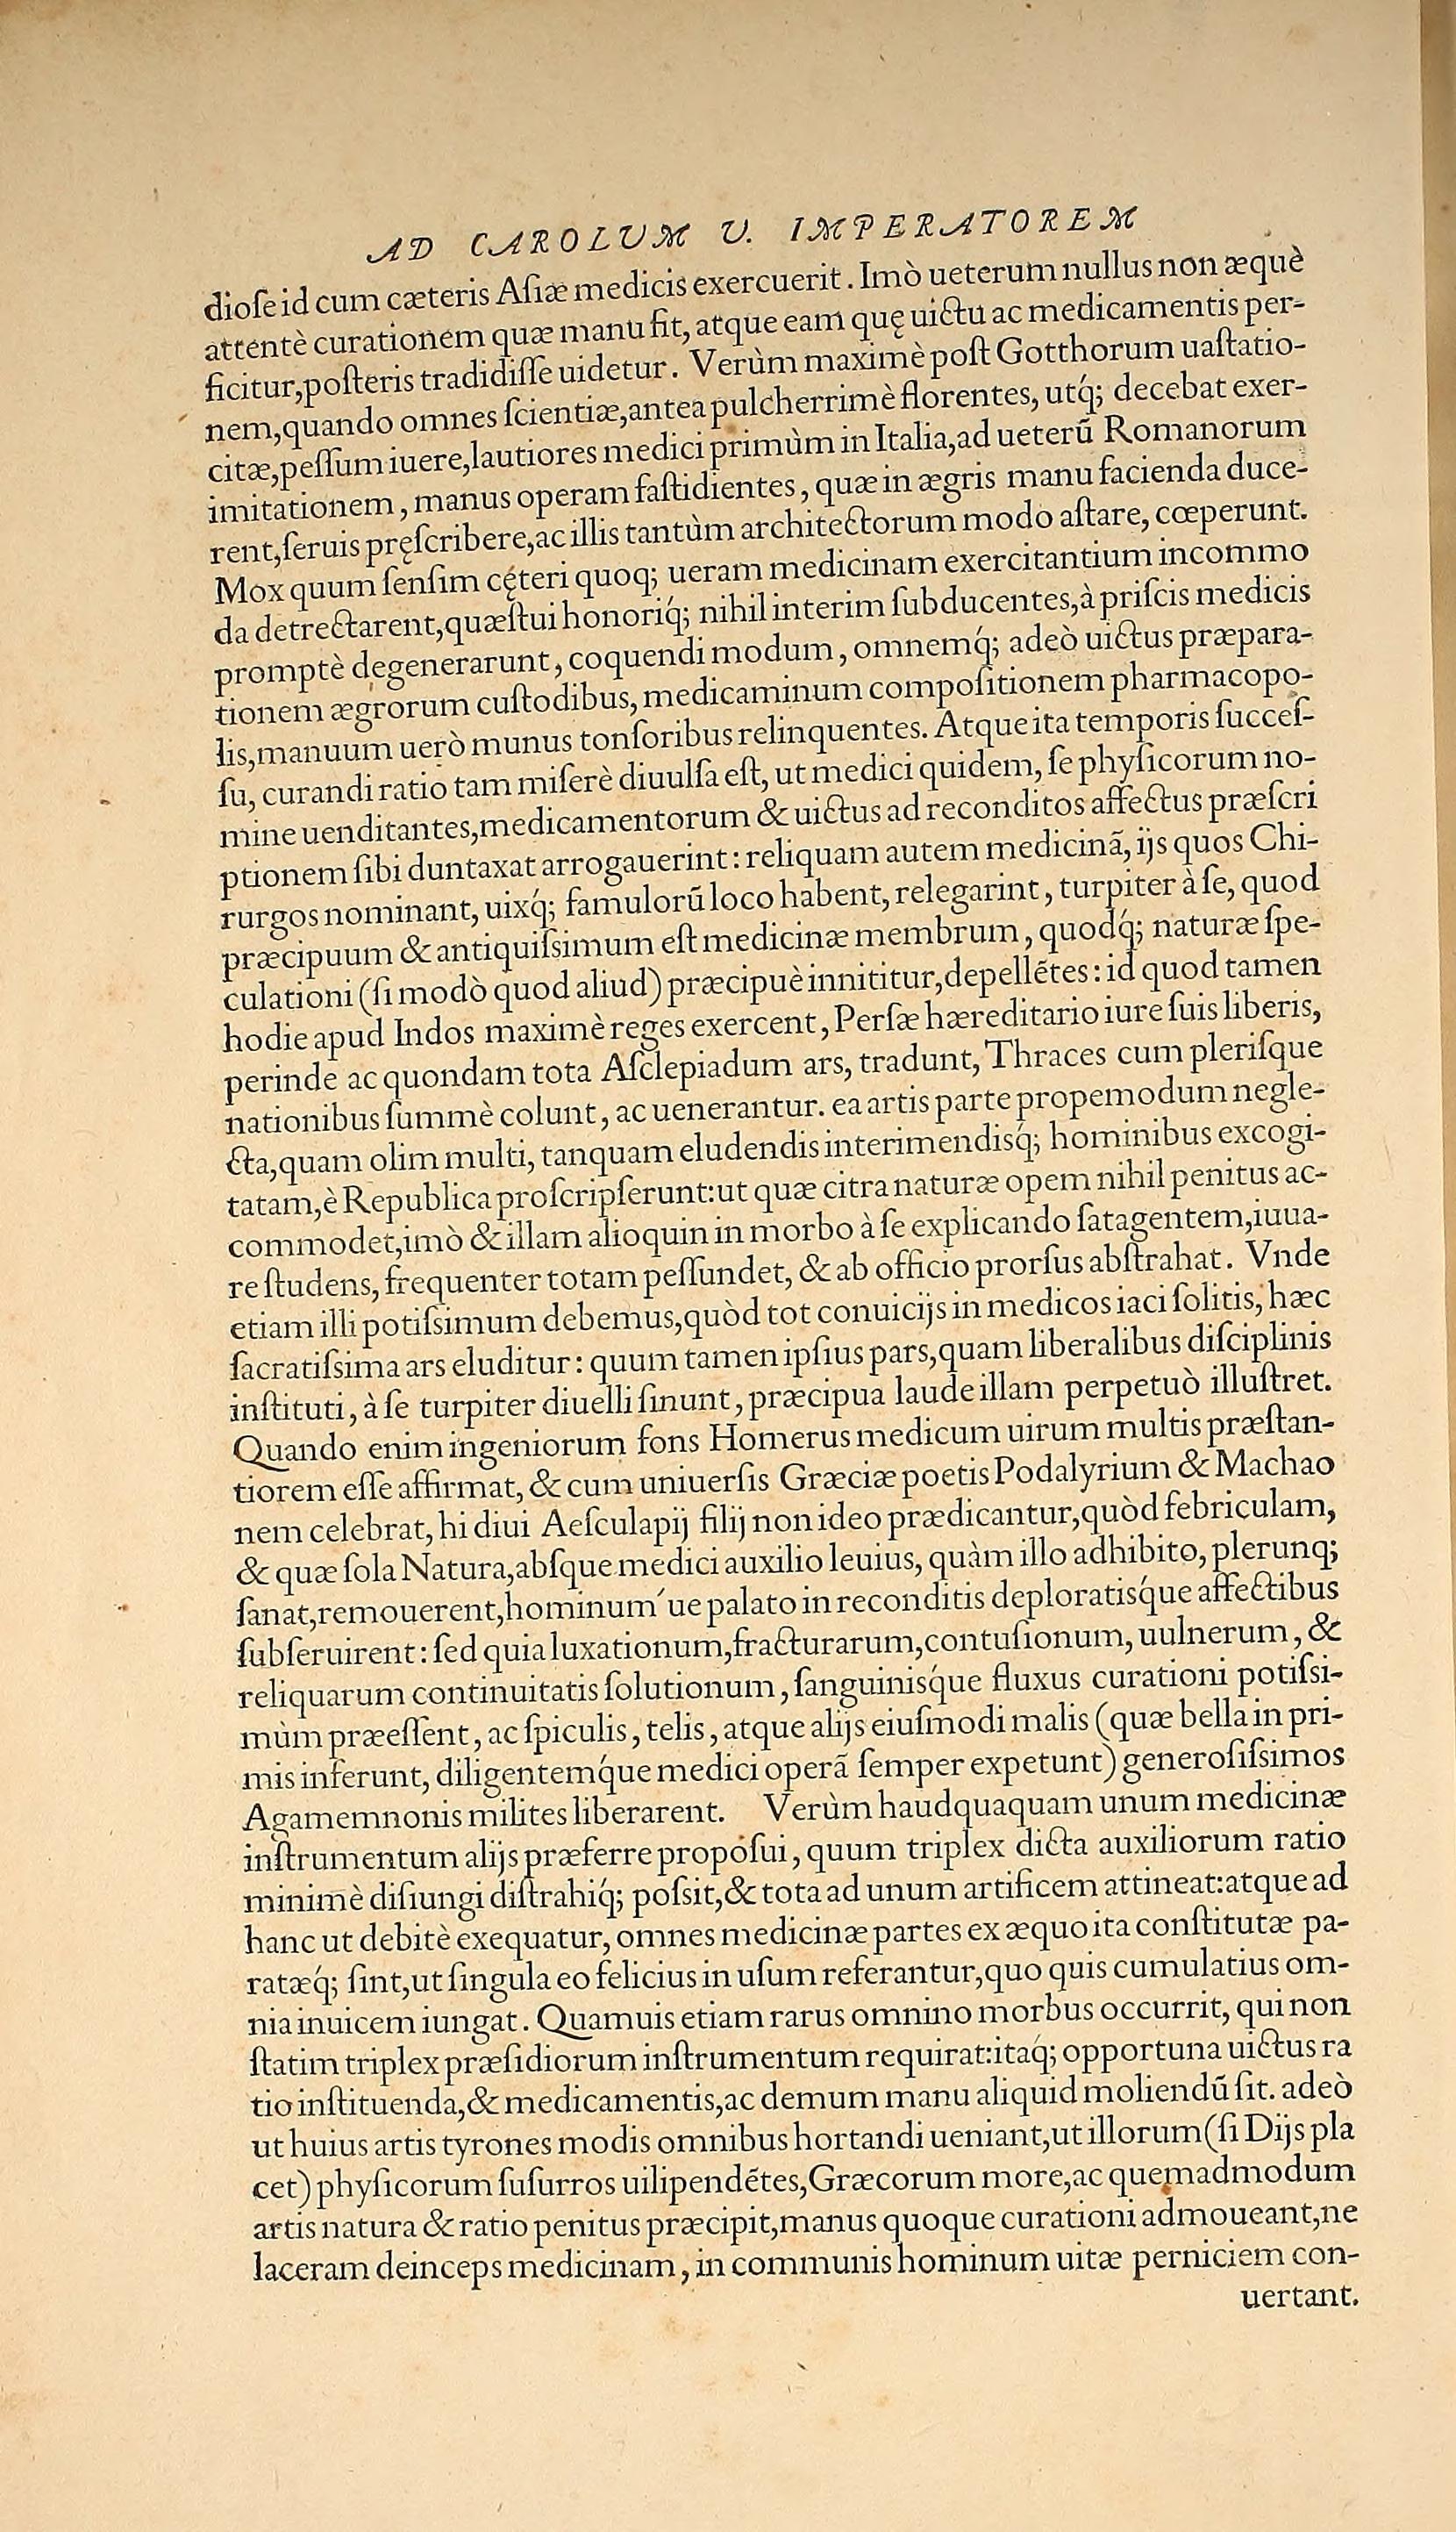 AD CAROLUM V. IMPERATOREM
dioſe id cum cæteris Aſiæ medicis exercuerit. Imò ueterum nullus non æquè
attentè curationem quæ manu fit, atque eam quę uictu ac medicamentis per-
ficitur, poſteris tradidiſſe uidetur. Verùm maximè poſt Gotthorum uaſtatio-
nem, quando omnes ſcientiæ, antea pulcherrimè florentes, utq́; decebat exer-
citæ, peſſum iuere, lautiores medici primùm in Italia, ad ueterũ Romanorum
imitationem, manus operam faſtidientes, quæ in ægris manu facienda duce-
rent, ſeruis pręſcribere, ac illis tantùm architectorum modo aſtare, cœperunt.
Mox quum ſenſim cęteri quoq; ueram medicinam exercitantium incommo
da detrectarent, quæſtui honoriq́; nihil interim ſubducentes, à priſcis medicis
promptè degenerarunt, coquendi modum, omnemq́; adeò uictus præpara-
tionem ægrorum cuſtodibus, medicaminum compoſitionem pharmacopo-
lis, manuum uerò munus tonſoribus relinquentes. Atque ita temporis ſucceſ-
ſu, curandi ratio tam miſerè diuulſa eſt, ut medici quidem, ſe phyſicorum no-
mine uenditantes, medicamentorum & uictus ad reconditos affectus præſcri
ptionem ſibi duntaxat arrogauerint: reliquam autem medicinã, ijs quos Chi-
rurgos nominant, uixq́; famulorũ loco habent, relegarint, turpiter à ſe, quod
præcipuum & antiquiſsimum eſt medicinæ membrum, quodq́; naturæ ſpe-
culationi (ſi modò quod aliud) præcipuè innititur, depellẽtes: id quod tamen
hodie apud Indos maximè reges exercent, Perſæ hæreditario iure ſuis liberis,
perinde ac quondam tota Aſclepiadum ars, tradunt, Thraces cum pleriſque
nationibus ſummè colunt, ac uenerantur. ea artis parte propemodum negle-
cta, quam olim multi, tanquam eludendis interimendisq́; hominibus excogi-
tatam, è Republica proſcripſerunt: ut quæ citra naturæ opem nihil penitus ac-
commodet, imò & illam alioquin in morbo à ſe explicando ſatagentem, iuua-
re ſtudens, frequenter totam peſſundet, & ab officio prorſus abſtrahat. Vnde
etiam illi potiſsimum debemus, quòd tot conuicijs in medicos iaci ſolitis, hæc
ſacratiſsima ars eluditur: quum tamen ipſius pars, quam liberalibus diſciplinis
inſtituti, à ſe turpiter diuelli ſinunt, præcipua laude illam perpetuò illuſtret.
Quando enim ingeniorum fons Homerus medicum uirum multis præſtan-
tiorem eſſe affirmat, & cum uniuerſis Græciæ poetis Podalyrium & Machao
nem celebrat, hi diui Aeſculapij filij non ideo prædicantur, quòd febriculam,
& quæ ſola Natura, abſque medici auxilio leuius, quàm illo adhibito, plerunq;
ſanat, remouerent, hominum´ue palato in reconditis deploratisq́ue affectibus
ſubſeruirent: ſed quia luxationum, fracturarum, contuſionum, uulnerum, &
reliquarum continuitatis ſolutionum, ſanguinisq́ue fluxus curationi potiſsi-
mùm præeſſent, ac ſpiculis, telis, atque alijs eiuſmodi malis (quæ bella in pri-
mis inferunt, diligentemq́ue medici operã ſemper expetunt) generoſiſsimos
Agamemnonis milites liberarent. Verùm haudquaquam unum medicinæ
inſtrumentum alijs præferre propoſui, quum triplex dicta auxiliorum ratio
minimè diſiungi diſtrahiq́; poſsit, & tota ad unum artificem attineat: atque ad
hanc ut debitè exequatur, omnes medicinæ partes ex æquo ita conſtitutæ pa-
ratæq́; ſint, ut ſingula eo felicius in uſum referantur, quo quis cumulatius om-
nia inuicem iungat. Quamuis etiam rarus omnino morbus occurrit, qui non
ſtatim triplex præſidiorum inſtrumentum requirat: itaq́; opportuna uictus ra
tio inſtituenda, & medicamentis, ac demum manu aliquid moliendũ ſit. adeò
ut huius artis tyrones modis omnibus hortandi ueniant, ut illorum (ſi Dijs pla
cet) phyſicorum ſuſurros uilipendẽtes, Græcorum more, ac quemadmodum
artis natura & ratio penitus præcipit, manus quoque curationi admoueant, ne
laceram deinceps medicinam, in communis hominum uitæ perniciem con-
uertant.